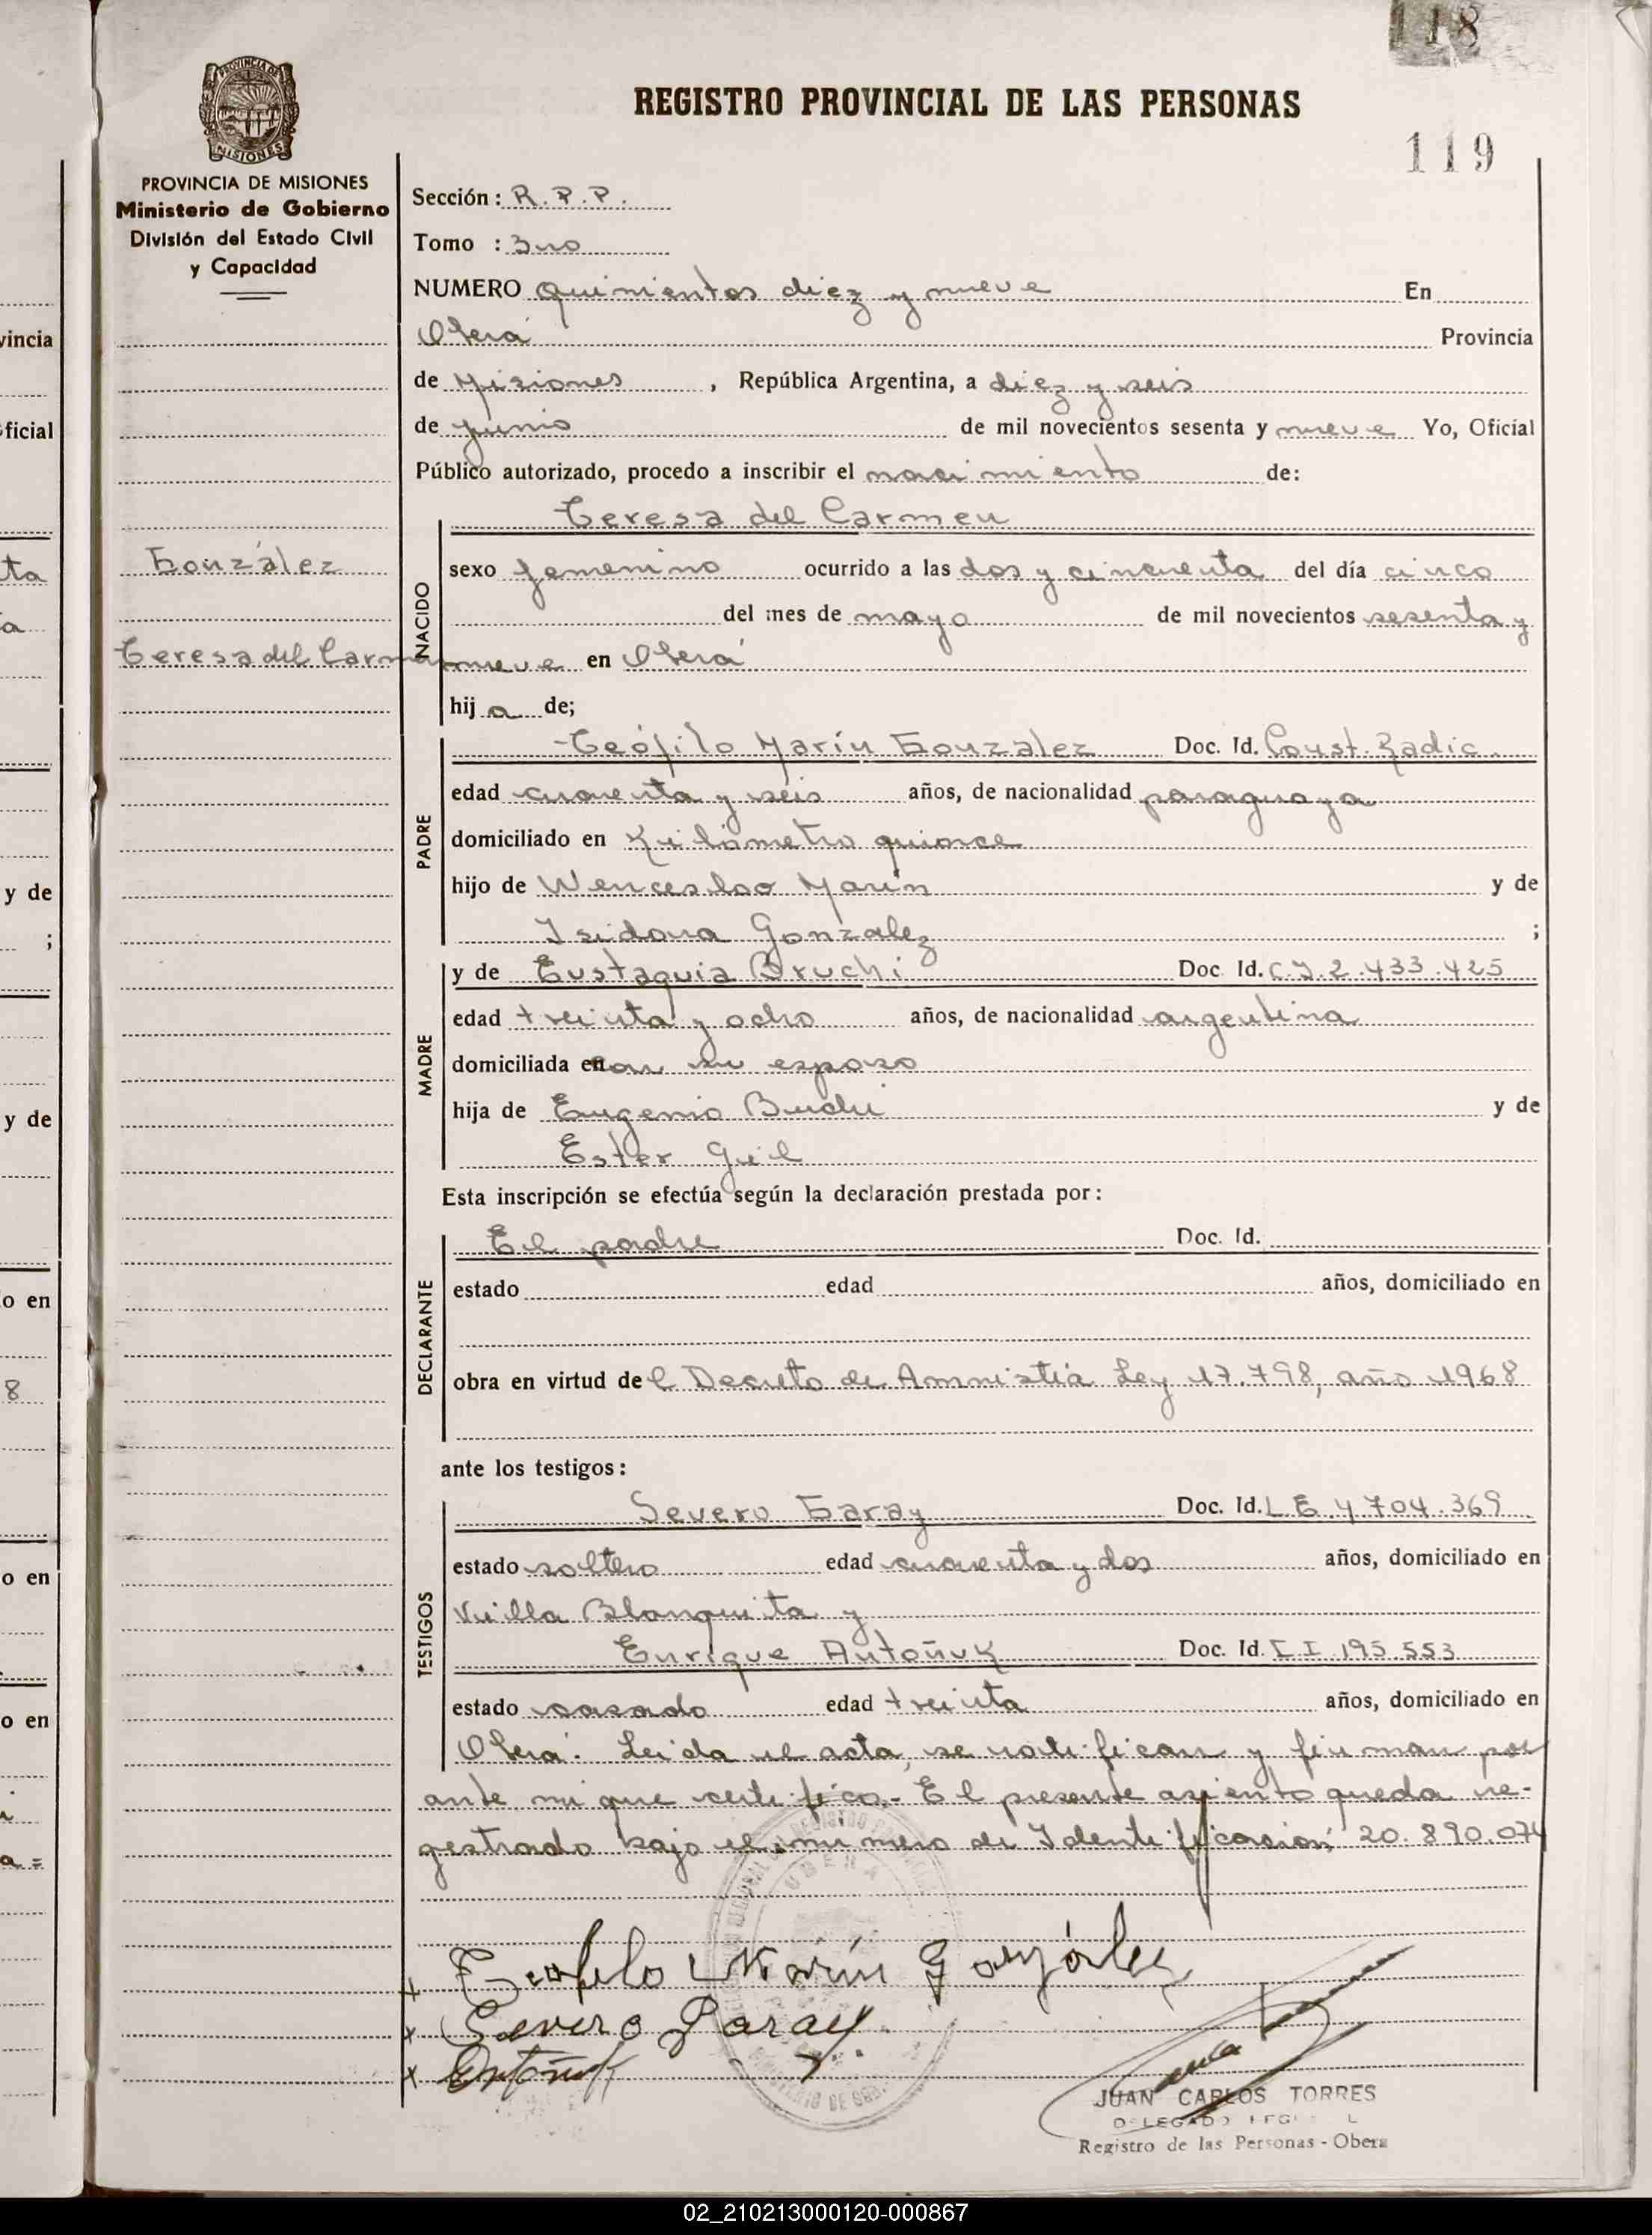 118
REGISTRO PROVINCIAL DE LAS PERSONAS
119
PROVINCIA DE
MISIONES
PROVINCIA DE MISIONES
Ministerio de Gobierno
División del Estado Civil
y Capacidad
Sección: R.P.P.
Tomo : 3no
NUMERO quinientos diez y nueve En
Oberá Provincia
de Misiones , República Argentina, a diez y seis
de junio de mil novecientos sesenta y nueve Yo, Oficial
Público autorizado, procedo a inscribir el nacimiento de:
Teresa del Carmen
González
Teresa del Carmen
NACIDO
sexo femenino ocurrido a las dos y cincuenta del día cinco
del mes de mayo de mil novecientos sesenta y
nueve en Oberá
hij a de;
PADRE
Teófilo Marín González Doc. Id. Const. Radic.
edad cuarenta y seis años, de nacionalidad paraguaya
domiciliado en Kilómetro quince
hijo de Wenceslao Marín y de
Isidora Gonzalez ;
MADRE
y de Eustaquia Bruchi Doc. Id. C.I. 2.433.425
edad treinta y ocho años, de nacionalidad argentina
domiciliada en con su esposo
hija de Eugenio y de
Ester Gil
Esta inscripción se efectúa según la declaración prestada por:
DECLARANTE
El padre Doc. Id.
estado edad años, domiciliado en
obra en virtud de l Decreto de Amnistía Ley 17.798, año 1968
ante los testigos:
TESTIGOS
Severo Garay Doc. Id. L E 4 704.369
estado soltero edad cuarenta y dos años, domiciliado en
Villa Blanquita y
Enrique Antoñuk Doc. Id. C I 195.553
estado casado edad treinta años, domiciliado en
Oberá. Leída el acta, se ratifican y firman por
ante mi que certifico.- El presente asiento queda re-
gistrado bajo el numero de Identificación 20.890.074
x Teofilo Marín González
x Severo Garay
x Antoñuk
JUAN CARLOS TORRES
Registro de las Personas - Obera
vincia
oficial
ta
a
y de
;
y de
o en
8
o en
o en
a =
02_210213000120-000867